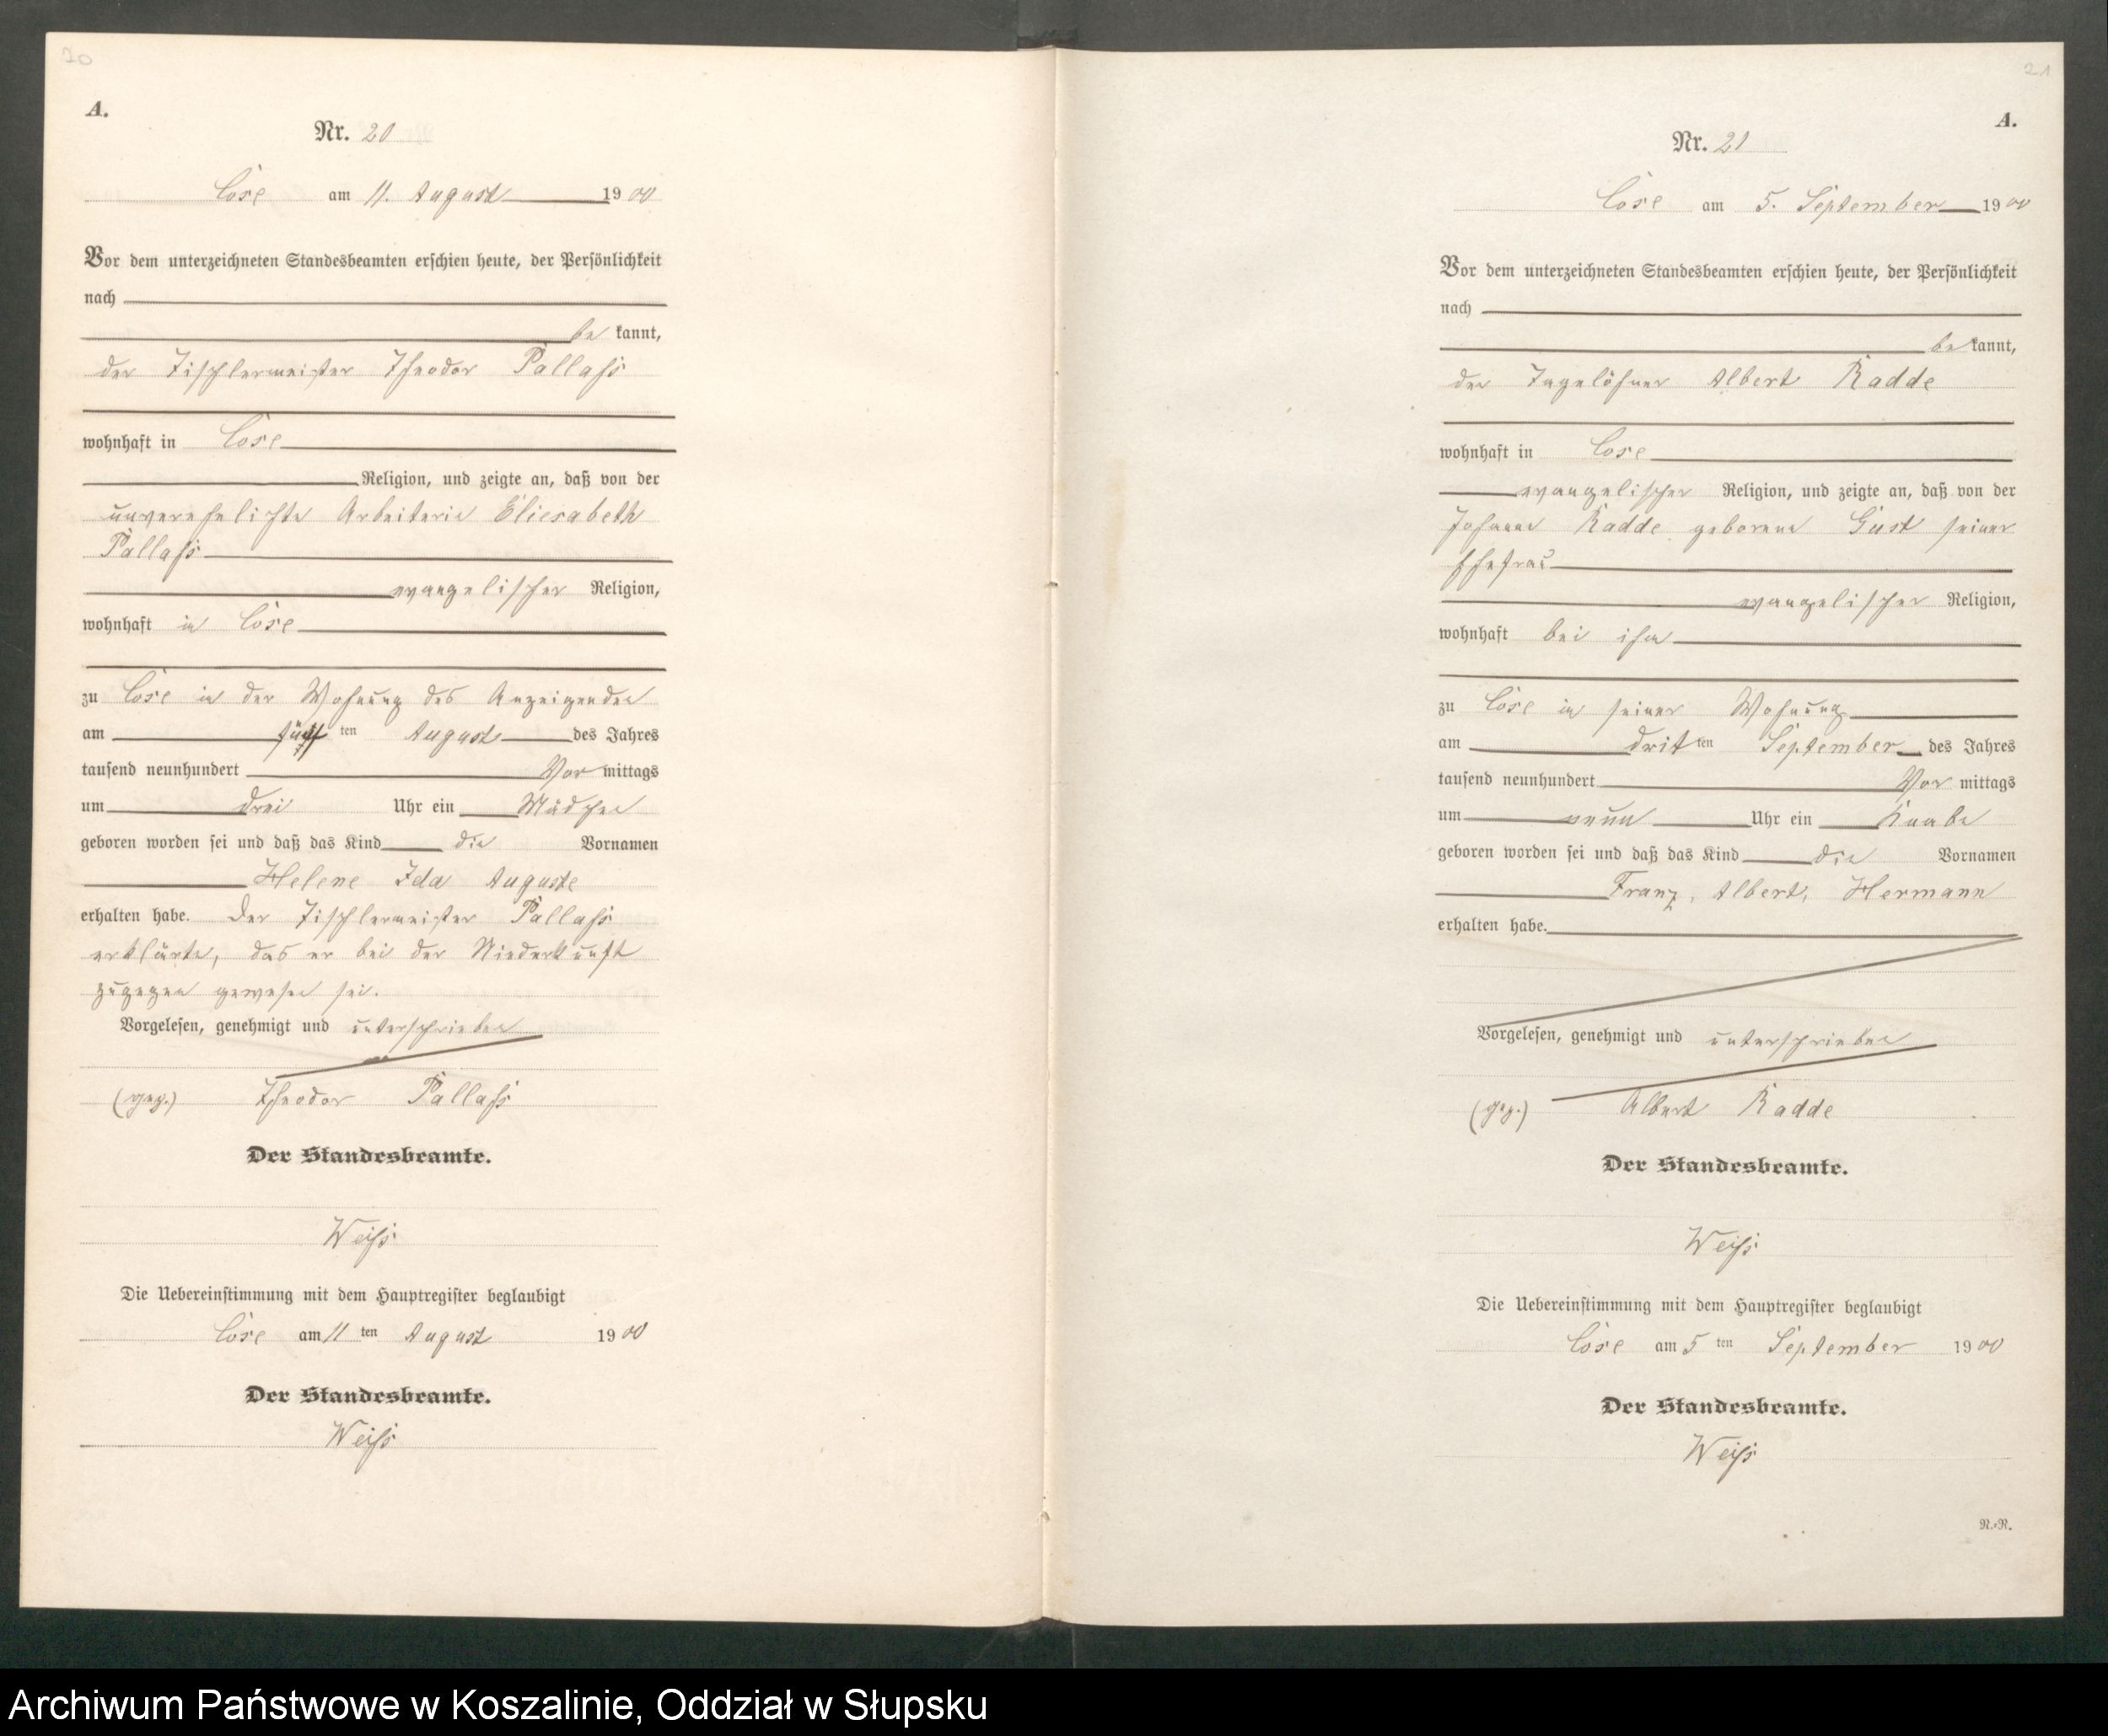 20
A.
Nr. 20
Cose am 11. August 1900
Vor dem unterzeichneten Standesbeamten erschien heute, der Persönlichkeit
nach
be kannt,
der Tischlermeister Theodor Pallaß
wohnhaft in Cose
Religion, und zeigte an, daß von der
unverehelichte Arbeiterin Eliesabeth
Pallaß
evangelischer Religion,
wohnhaft in Cose
zu Cose in der Wohnung des Anzeigenden
am fünf ten August des Jahres
tausend neunhundert Vor mittags
um drei Uhr ein Mädchen
geboren worden sei und daß das Kind die Vornamen
Helene Ida Auguste
erhalten habe. Der Tischlermeister Pallaß
erklärte, das er bei der Niederkunft
zugegen gewesen sei.
Vorgelesen, genehmigt und unterschrieben
(gez.) Theodor Pallaß
Der Standesbeamte.
Weiß
Die Uebereinstimmung mit dem Hauptregister beglaubigt
Cose am 11 ten August 1900
Der Standesbeamte.
Weiß
21
A.
Nr. 21
Cose am 5. September 1900
Vor dem unterzeichneten Standesbeamten erschien heute, der Persönlichkeit
nach
be kannt,
der Tagelöhner Albert Radde
wohnhaft in Cose
evangelischer Religion, und zeigte an, daß von der
Johanne Radde geborene Gust seiner
Ehefrau
evangelischer Religion,
wohnhaft bei ihm
zu Cose in seiner Wohnung
am drit ten September des Jahres
tausend neunhundert Vor mittags
um neun Uhr ein Knabe
geboren worden sei und daß das Kind die Vornamen
Franz, Albert, Hermann
erhalten habe.
Vorgelesen, genehmigt und unterschrieben
(gez.) Albert Radde
Der Standesbeamte.
Weiß
Die Uebereinstimmung mit dem Hauptregister beglaubigt
Cose am 5 ten September 1900
Der Standesbeamte.
Weiß
N.-N.
Archiwum Państwowe w Koszalinie, Oddział w Słupsku